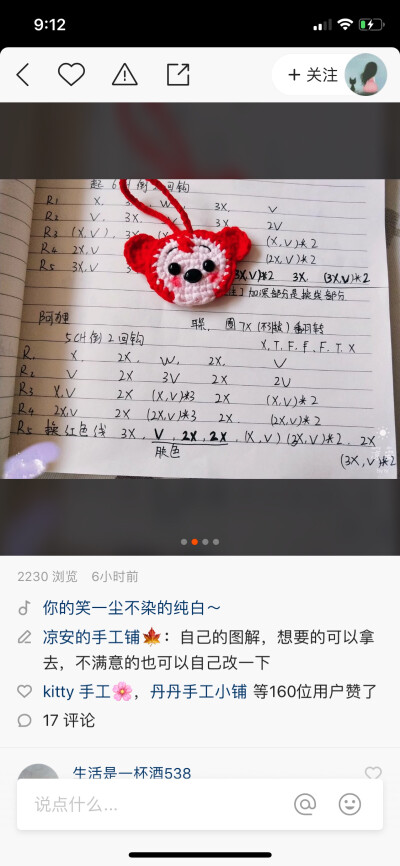 9:12
+ 关注
R1 X.
3X. V
R2 V. 3X. 3X 2V
R3 (X,V). 3X (X,V)*2
R4 2X,V (2X,V)*2
R5 3X,V 3X,V)*2 3X. (3X,V)*2
加深部分是换线部分
阿狸 耳. 圈7X(不引拔)翻转
5CH倒2回钩 X.T.F.f.F.T.X
R. X 2X. W. 2X. V
R2 V 2X 3V 2X 2U
R3 X,V 2X (X,V)*3 2X (X,V)*2
R4 2X,V 2X (2X,V)*3 2X. (2X,V)*2
R5 换红色线 3X, V, 2X, 2X, (X,V) (3X,V)*2. 2X
肤色 (3X,V)*2
2230 浏览 6小时前
你的笑一尘不染的纯白～
凉安的手工铺🍁：自己的图解，想要的可以拿
去，不满意的也可以自己改一下
kitty 手工🌸，丹丹手工小铺 等160位用户赞了
17 评论
生活是一杯酒538
说点什么...